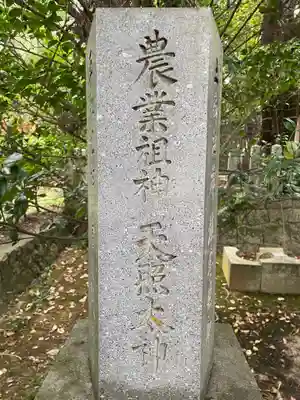 農業祖神 天照大神